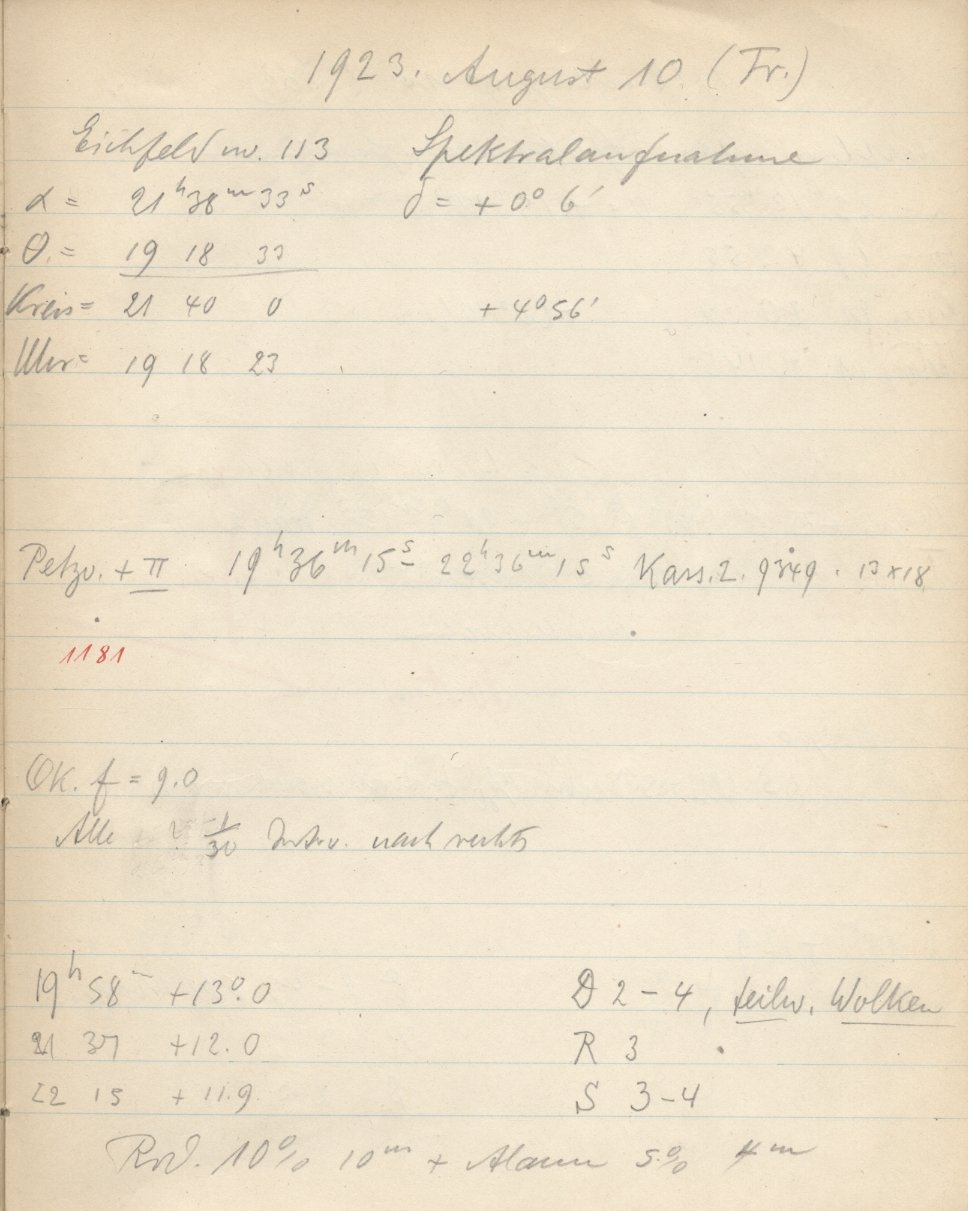 1923. August 10 (Fr.)
Eichfeld nr. 113 Spektralaufnahme
α = 21h 38m 33s δ = +0° 6′
Θ = 19 18 33
Kreis = 21 40 0 +4°56′
Uhr = 19 18 23
Petzv. + π 19h36m15s – 22h36m15s Kass. 2. 9349. 13×18
1181
Ok. f = 9.0
Alle 1/30 Interv. nach rechts
19h 58m +13°.0 D 2–4, teilw. Wolken
21 37 +12.0 R 3
22 15 +11.9 S 3–4
Rod. 10% 10m + Alaun 5% 4m